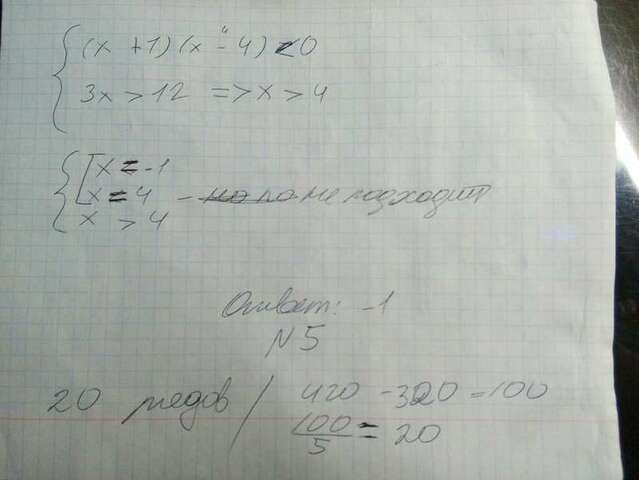 (x + 1) (x - 4) < 0
3x > 12 => x > 4
x = -1
x = 4 - не подходит
x > 4
Ответ: -1
N 5
20 рядов / 420 - 320 = 100
100/5 = 20